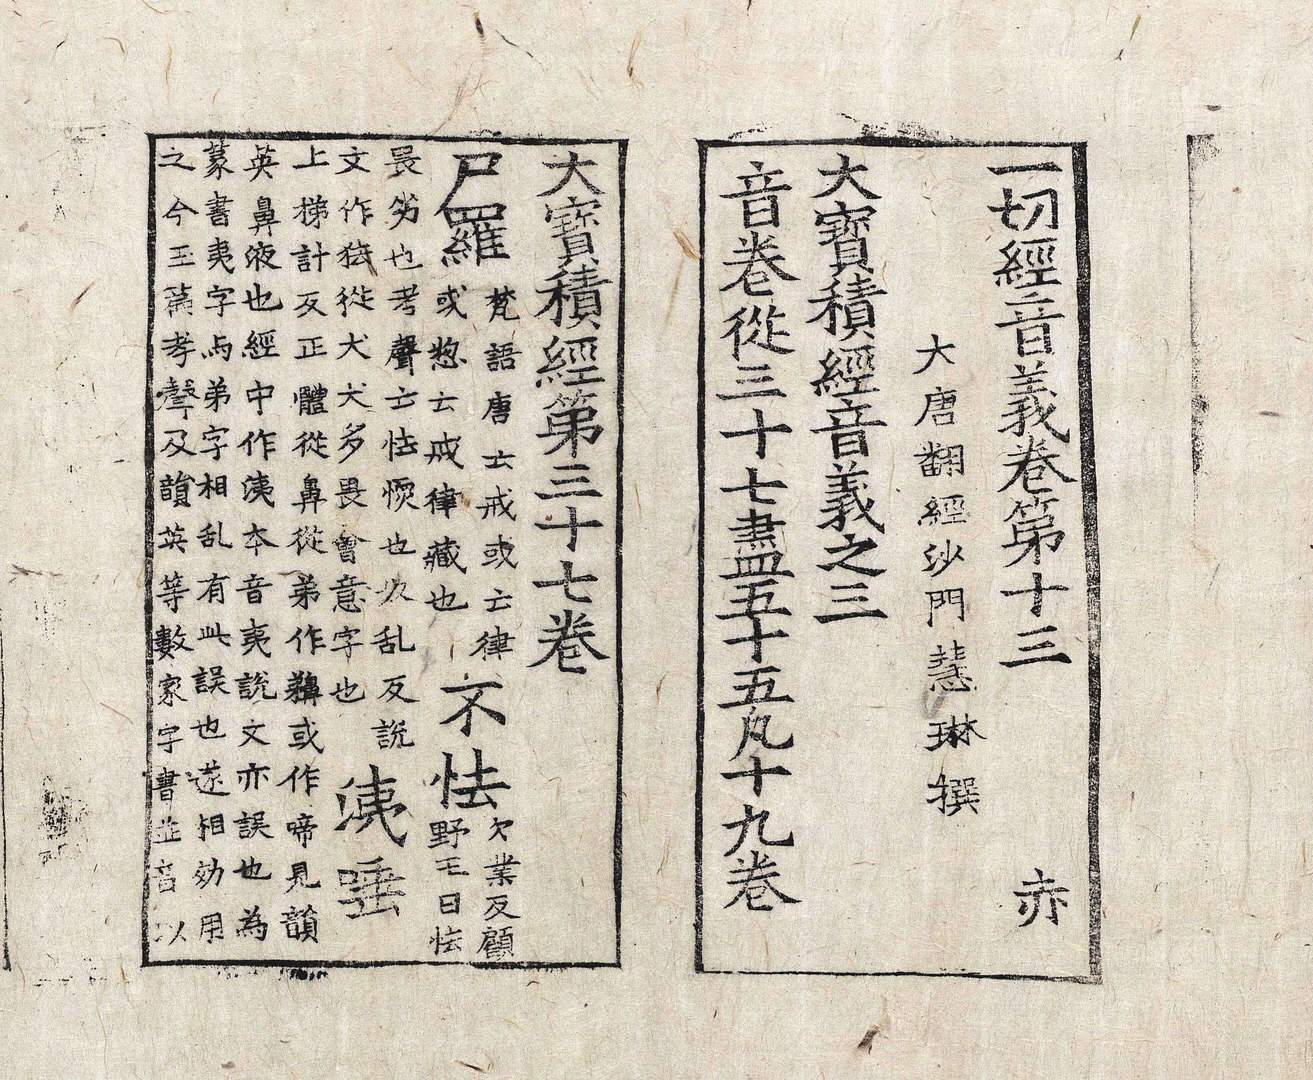 一切經音義卷第十三　赤
大唐翻經沙門慧琳撰
大寶積經音義之三
音卷從三十七盡五十五凡十九卷
大寶積經第三十七卷
尸羅 梵語唐云戒或云律
或惣云戒律藏也 不怯 欠業反顧
野王曰怯
畏劣也考聲云怯愞也 乱反説
文作㹤從犬犬多畏會意字也 洟唾
上梯計反正體從鼻從弟作鵜或作啼見韻
英鼻液也經中作洟夲音夷説文亦誤也為
篆書夷字与弟字相乱有此誤也遂相効用
之今玉篇考聲及韻英等數家字書並音以